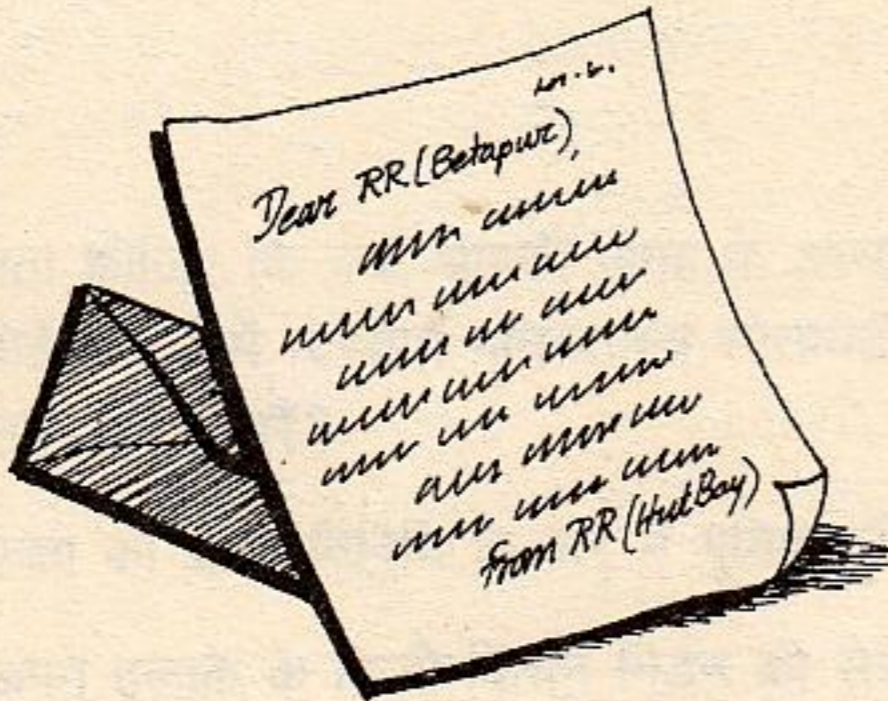 Dear RR (Betapur),
From RR (Hut Bay)